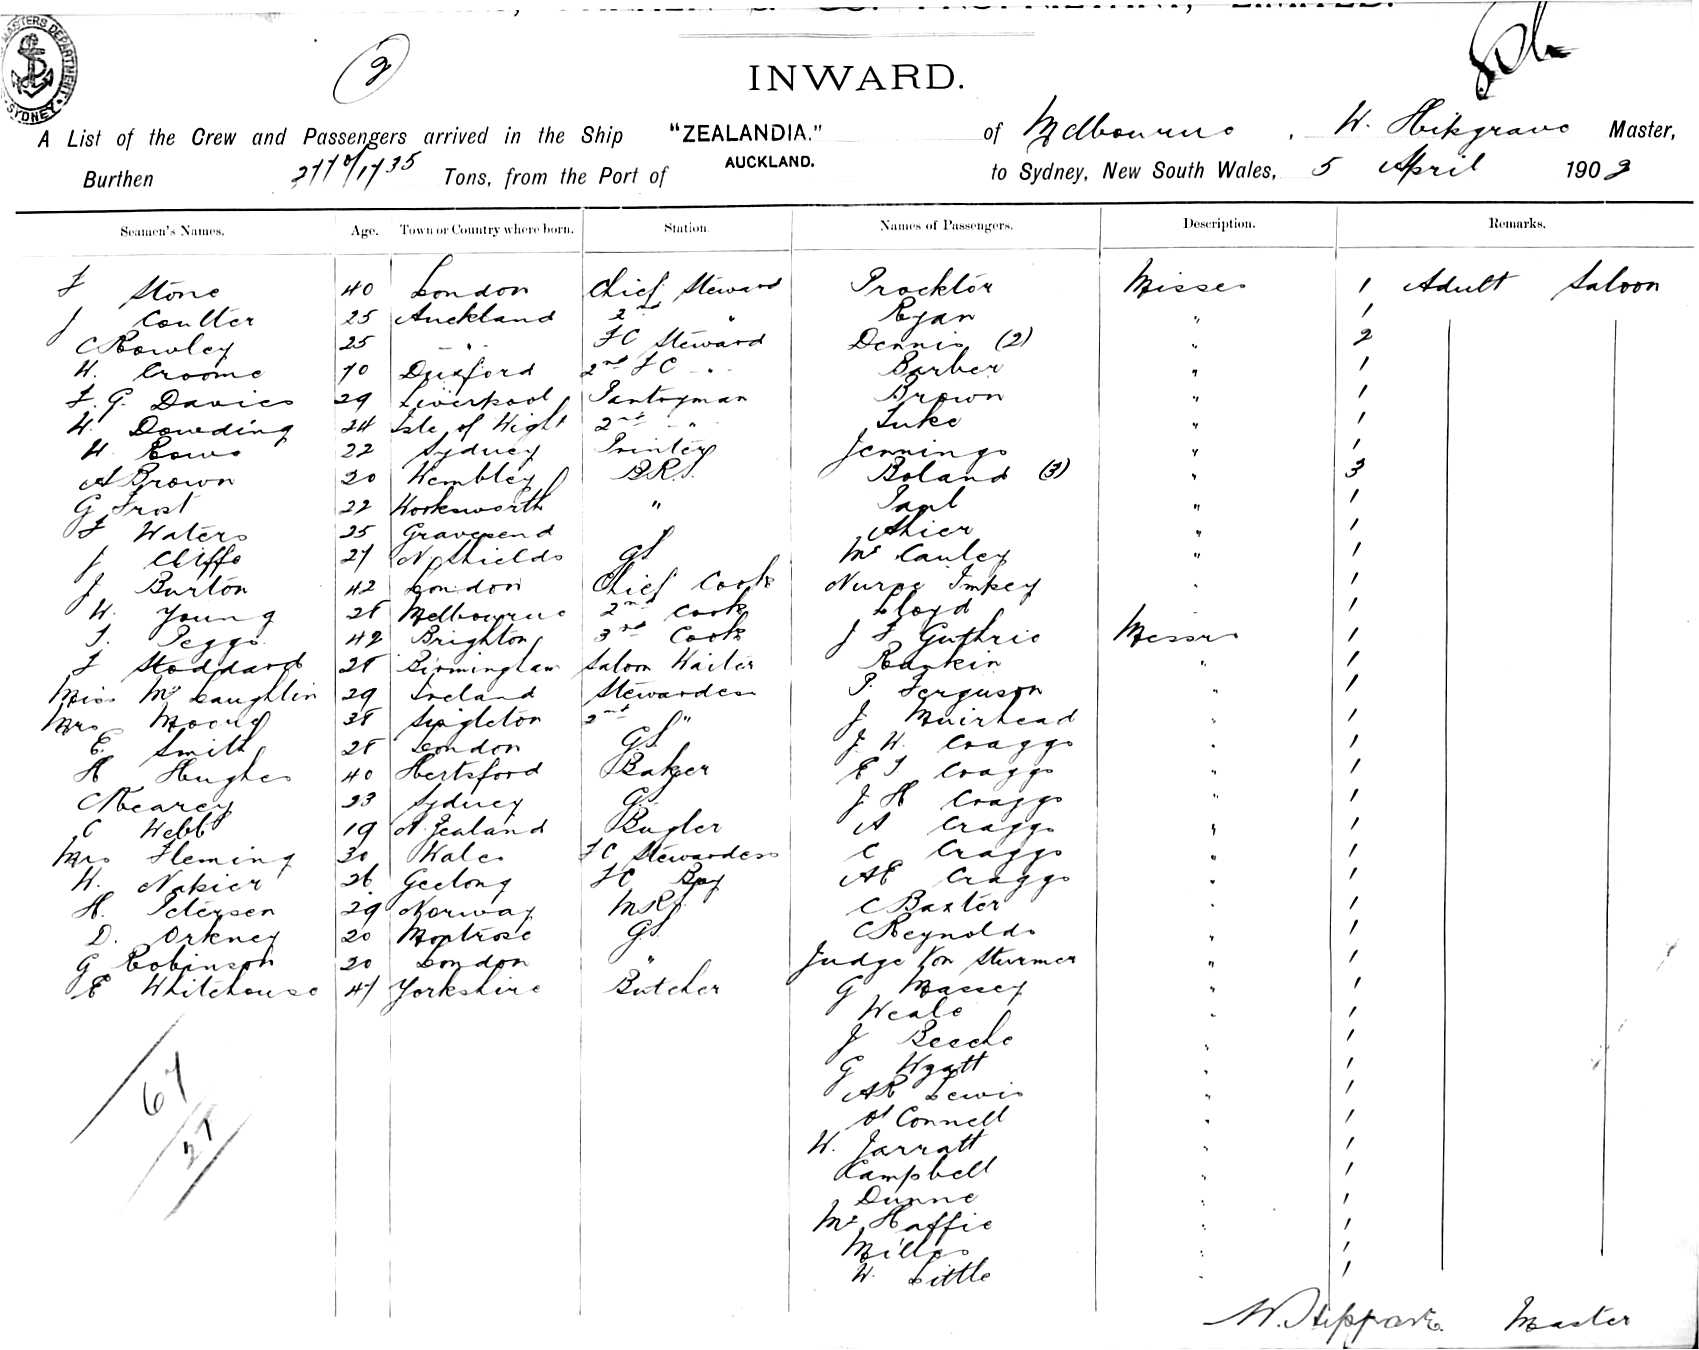 MASTERS DEPARTMENT
SYDNEY
2
INWARD.
A List of the Crew and Passengers arrived in the Ship "ZEALANDIA." of Melbourne, W. Master,
AUCKLAND.
Burthen Tons, from the Port of to Sydney, New South Wales, 5 April 190
Seamen's Names. Age. Town or Country where born. Station. Names of Passengers. Description. Remarks.
F Stone 40 London Chief Steward Procktor Misses 1 Adult Saloon
J Coulter 25 Auckland 2nd " Ryan " 1
C Rowley 25 " FC Steward Dennis (2) " 2
W. Croome Duxford 2nd FC " Barber " 1
F. G. Davies 29 Liverpool Pantryman Brown " 1
W. Dowding 24 Isle of Wight 2nd " Luke " 1
W. 22 Sydney Printer Jennings " 1
A Brown 20 Wembley B.R.S. Boland (3) " 3
G Frost 22 " Paul " 1
F Waters 25 Gravesend " Ahier " 1
J Cliffe 27 N. Shields GS McCauley " 1
J Burton 42 London Chief Cook Nurse Impey " 1
W. Young 28 Melbourne 2nd Cook Lloyd 1
T. Peggs 42 Brighton 3rd Cook J F Guthrie Messrs 1
F Stoddard 28 Birmingham Saloon Waiter Rankin " 1
Miss McLaughlin 29 Ireland Stewardess P. Ferguson " 1
Mrs 38 Singleton 2nd " J Muirhead " 1
E. Smith 28 London GS. J. W. Craggs " 1
H Hughes 40 Hertsford Baker E T Craggs " 1
C Kearey 23 Sydney GS J H Craggs " 1
C Webb 19 N. Zealand Bugler A Craggs " 1
Mrs Fleming 30 Wales FC Stewardess C Craggs " 1
W. Napier 26 Geelong FC Boy AE Craggs " 1
H. Petersen 29 Norway MRS C Baxter " 1
D. Orkney 20 Montrose GS C Reynolds " 1
G Robinson 20 London " Judge Von Sturmer " 1
E Whitehouse 47 Yorkshire Butcher G Massey " 1
Weale " 1
J Beeche " 1
G Wyatt " 1
AR Lewis " 1
O'Connell " 1
W. Jarratt " 1
Campbell " 1
Dunne " 1
McHaffie " 1
Milles " 1
W. Little " 1
67
27
Master